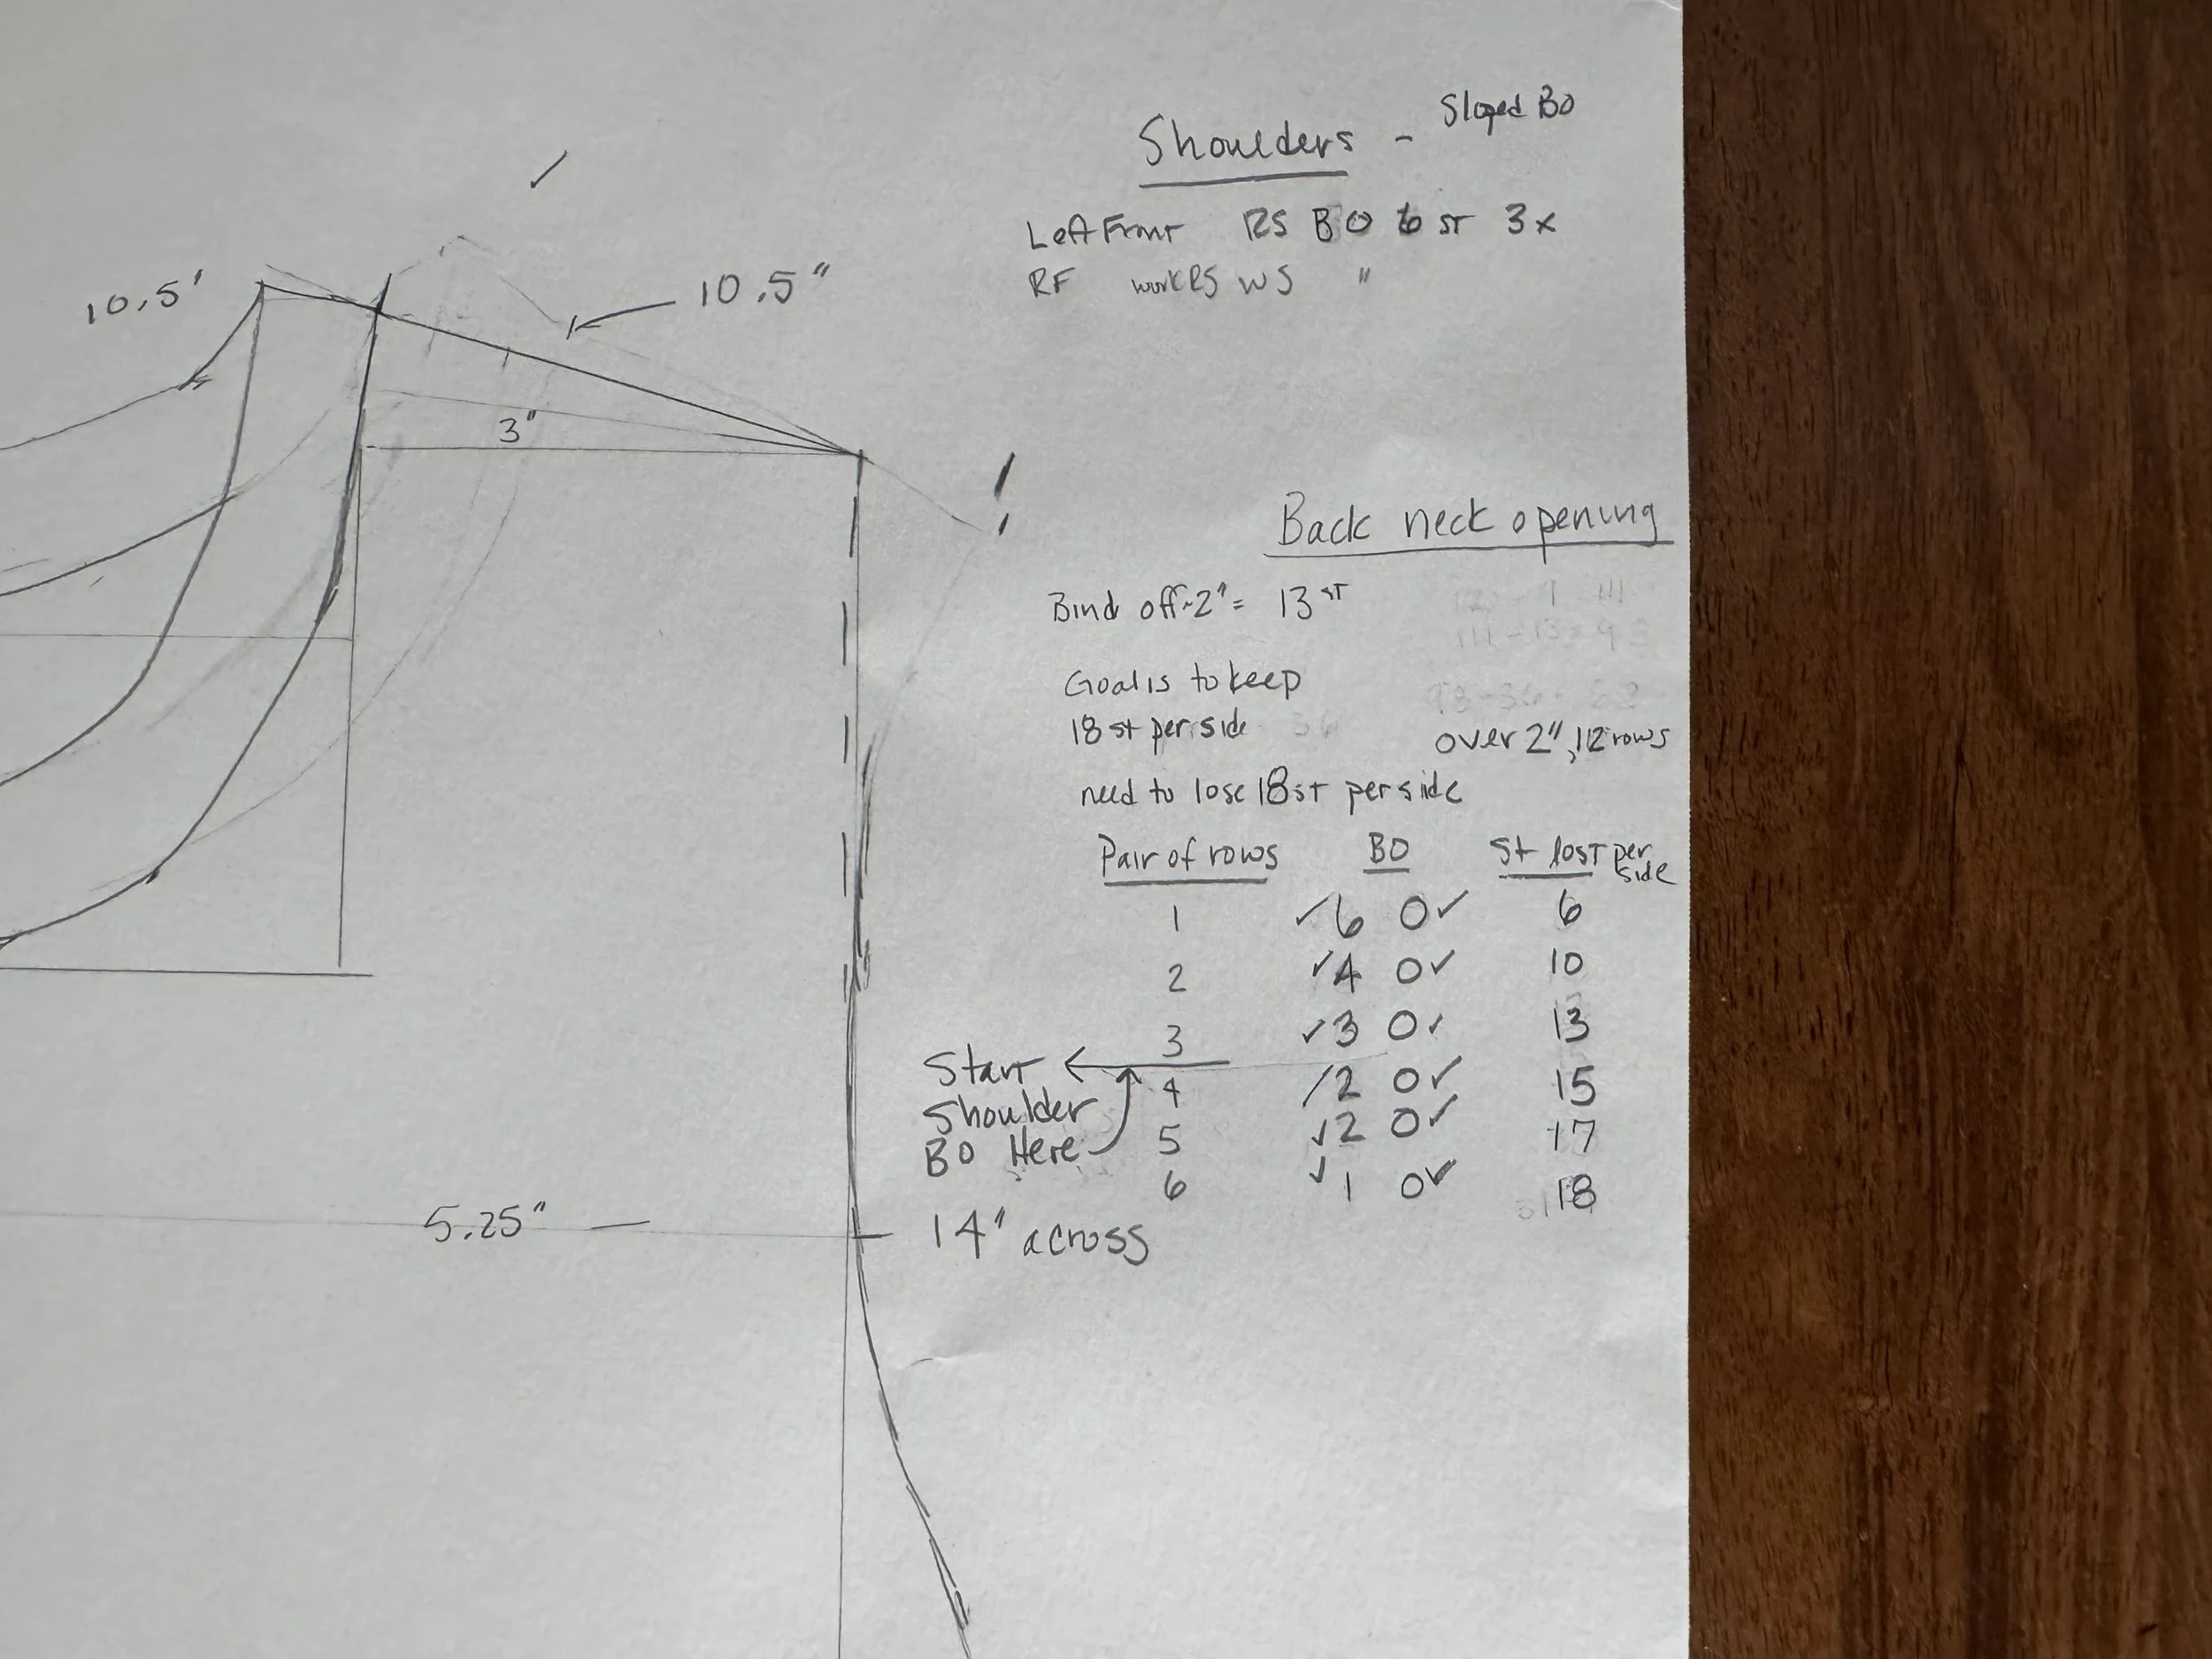 Shoulders - Sloped BO
Left Front RS BO 6 st 3x
RF work RS WS "
10.5'
10.5"
3"
!
Back neck opening
Bind off ~2" = 13 st
Goal is to keep
18 st per side
over 2", 12 rows
need to lose 18 st per side
Pair of rows BO St lost per side
1 ✓6 0✓ 6
2 ✓4 0✓ 10
3 ✓3 0✓ 13
Start Shoulder BO Here
4 /2 0✓ 15
5 ✓2 0✓ 17
6 ✓1 0✓ 18
5.25" — 14" across